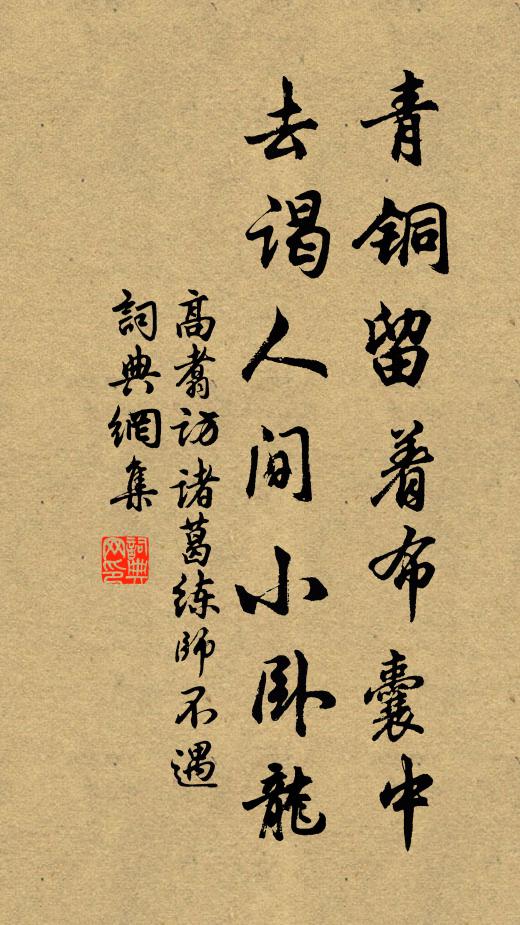 青铜留着布囊中
去谒人间小卧龍
高翥访诸葛练師不遇
詞典網集
詞典網印